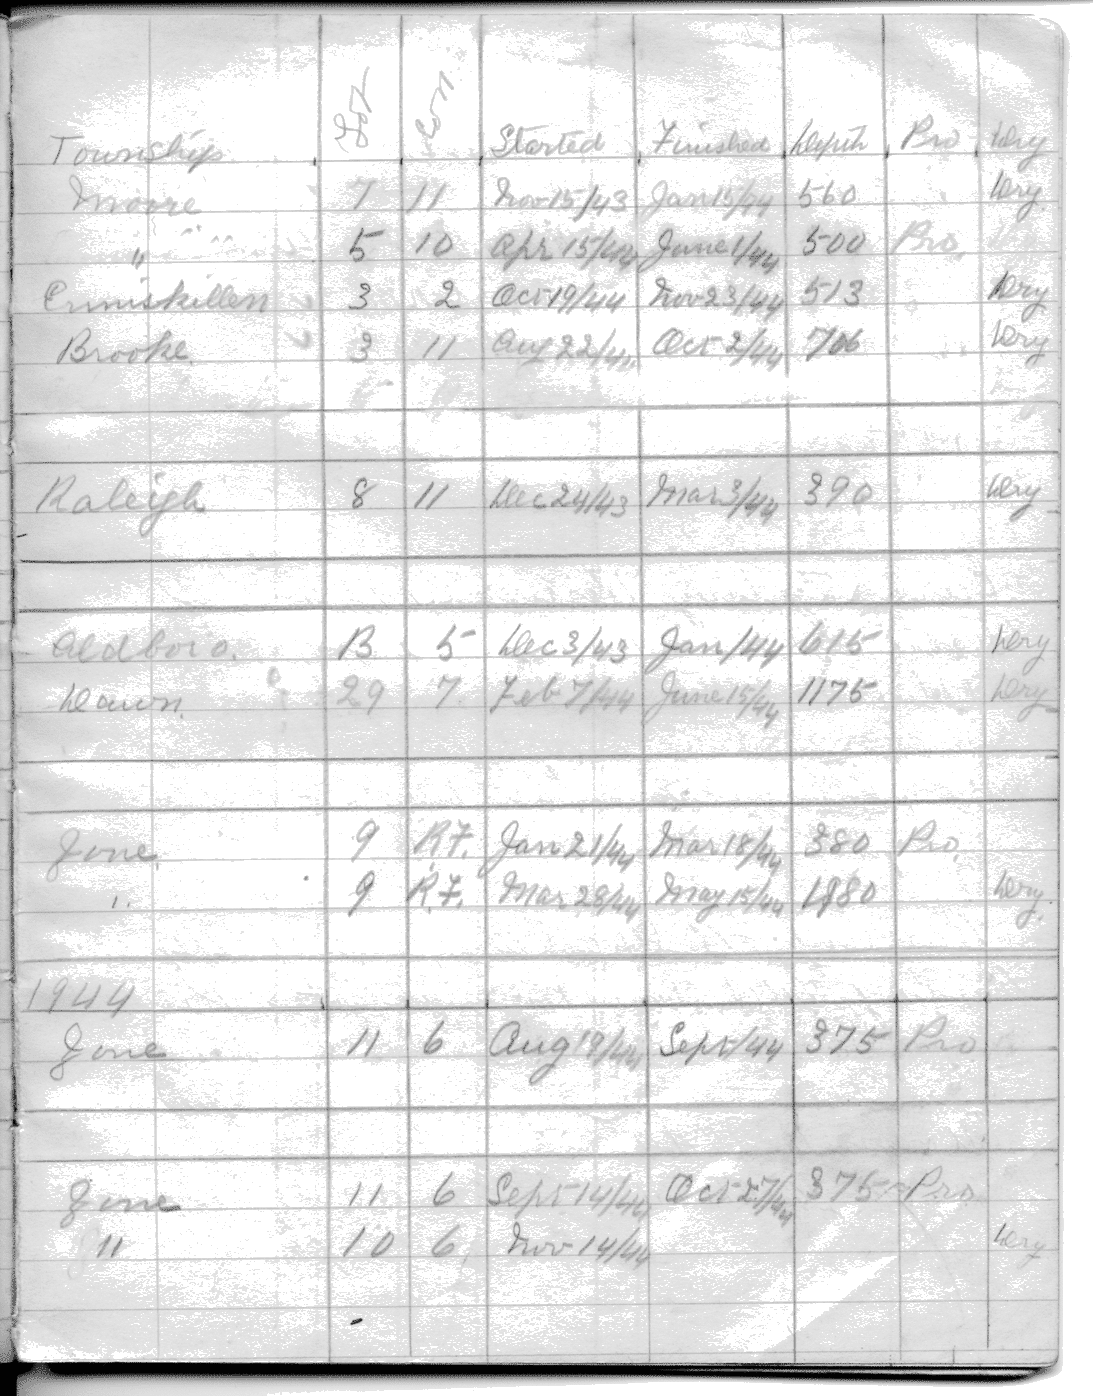 Township Lot Con Started Finished Depth Pro Dry
Moore 7 11 Nov 15/43 Jan 15/44 560 Dry
" 5 10 Apr 15/44 June 1/44 500 Pro.
Enniskillen 3 2 Oct 19/44 Nov 23/44 513 Dry
Brooke. 3 11 Aug 22/44 Oct 2/44 706 Dry
Raleigh 8 11 Dec 24/43 Mar 3/44 390 Dry
Aldboro. B 5 Dec 3/43 Jan/44 615 Dry
Dawn. 29 7 Feb 7/44 June 15/44 1175 Dry
Zone. 9 R.F. Jan 21/44 Mar 18/44 380 Pro.
" 9 R.F. Mar 28/44 May 15/44 Dry.
1944
Zone 11 6 Aug 19/44 Sept/44 375 Pro
Zone 11 6 Sept 14/44 Oct 27/44 375 Pro
" 10 6 Nov 14/44 Dry